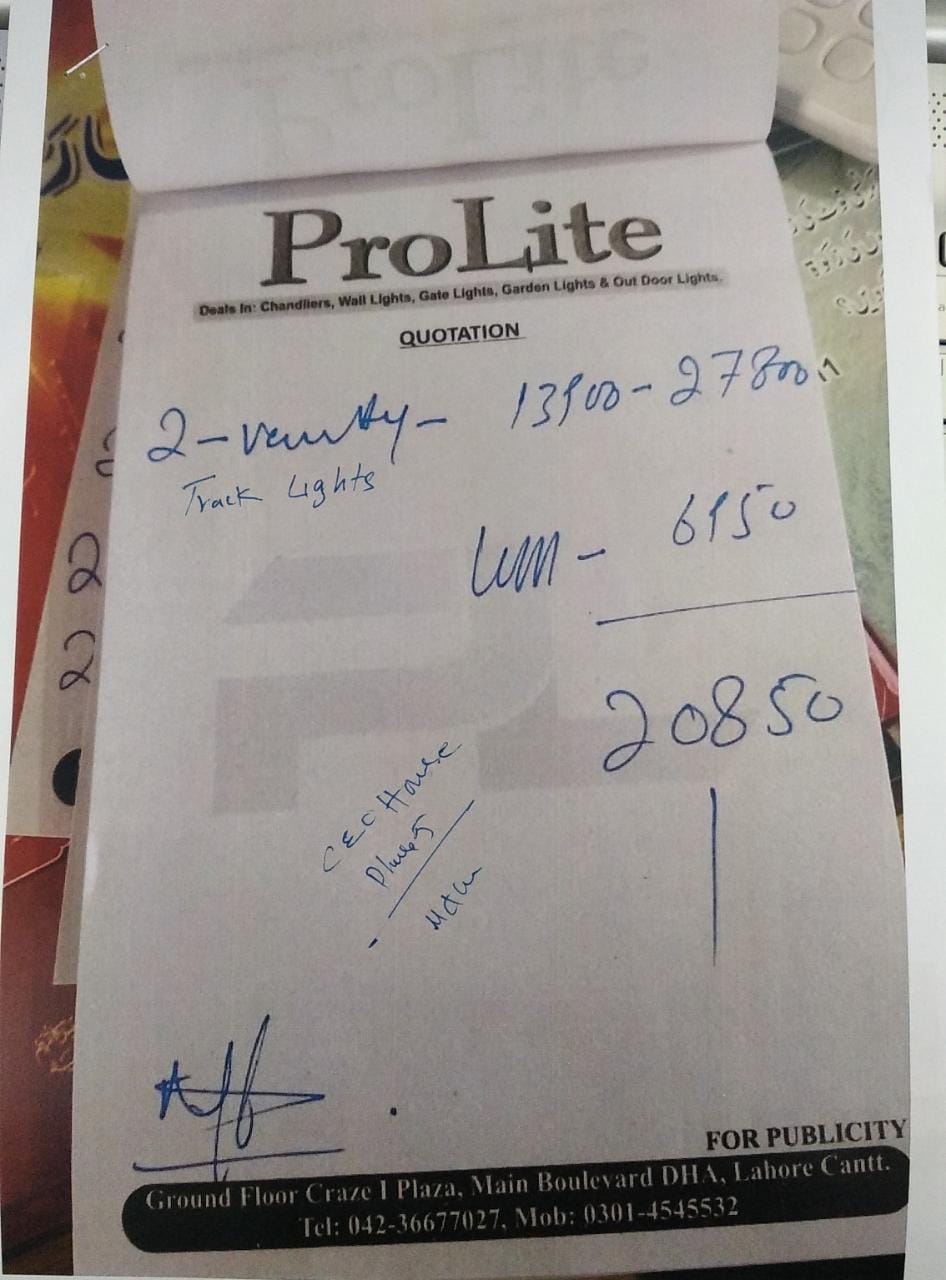 ProLite
Deals In: Chandliers, Wall Lights, Gate Lights, Garden Lights & Out Door Lights.
QUOTATION
2 - vanity - 13900 - 27800
Track Lights
6950
20850
CEO House
Phase 5
FOR PUBLICITY
Ground Floor Craze 1 Plaza, Main Boulevard DHA, Lahore Cantt.
Tel: 042-36677027, Mob: 0301-4545532
2
2
2